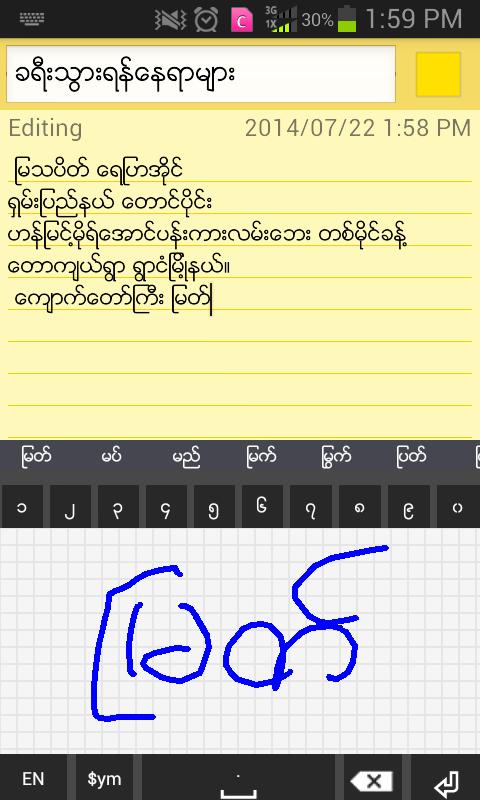 3G 1X 30% 1:59 PM
ခရီးသွားရန်နေရာများ
Editing 2014/07/22 1:58 PM
မြသပိတ် ရေပြာအိုင်
ရှမ်းပြည်နယ် တောင်ပိုင်း
ဟန်မြင့်မိုရ်အောင်ပန်းကားလမ်းဘေး တစ်မိုင်ခန့်
တောကျယ်ရွာ ရွာငံမြို့နယ်။
ကျောက်တော်ကြီး မြတ်
မြတ် မပ် မည် မြက် မြွက် ပြတ်
၁ ၂ ၃ ၄ ၅ ၆ ၇ ၈ ၉ ၀
မြတ်
EN $ym